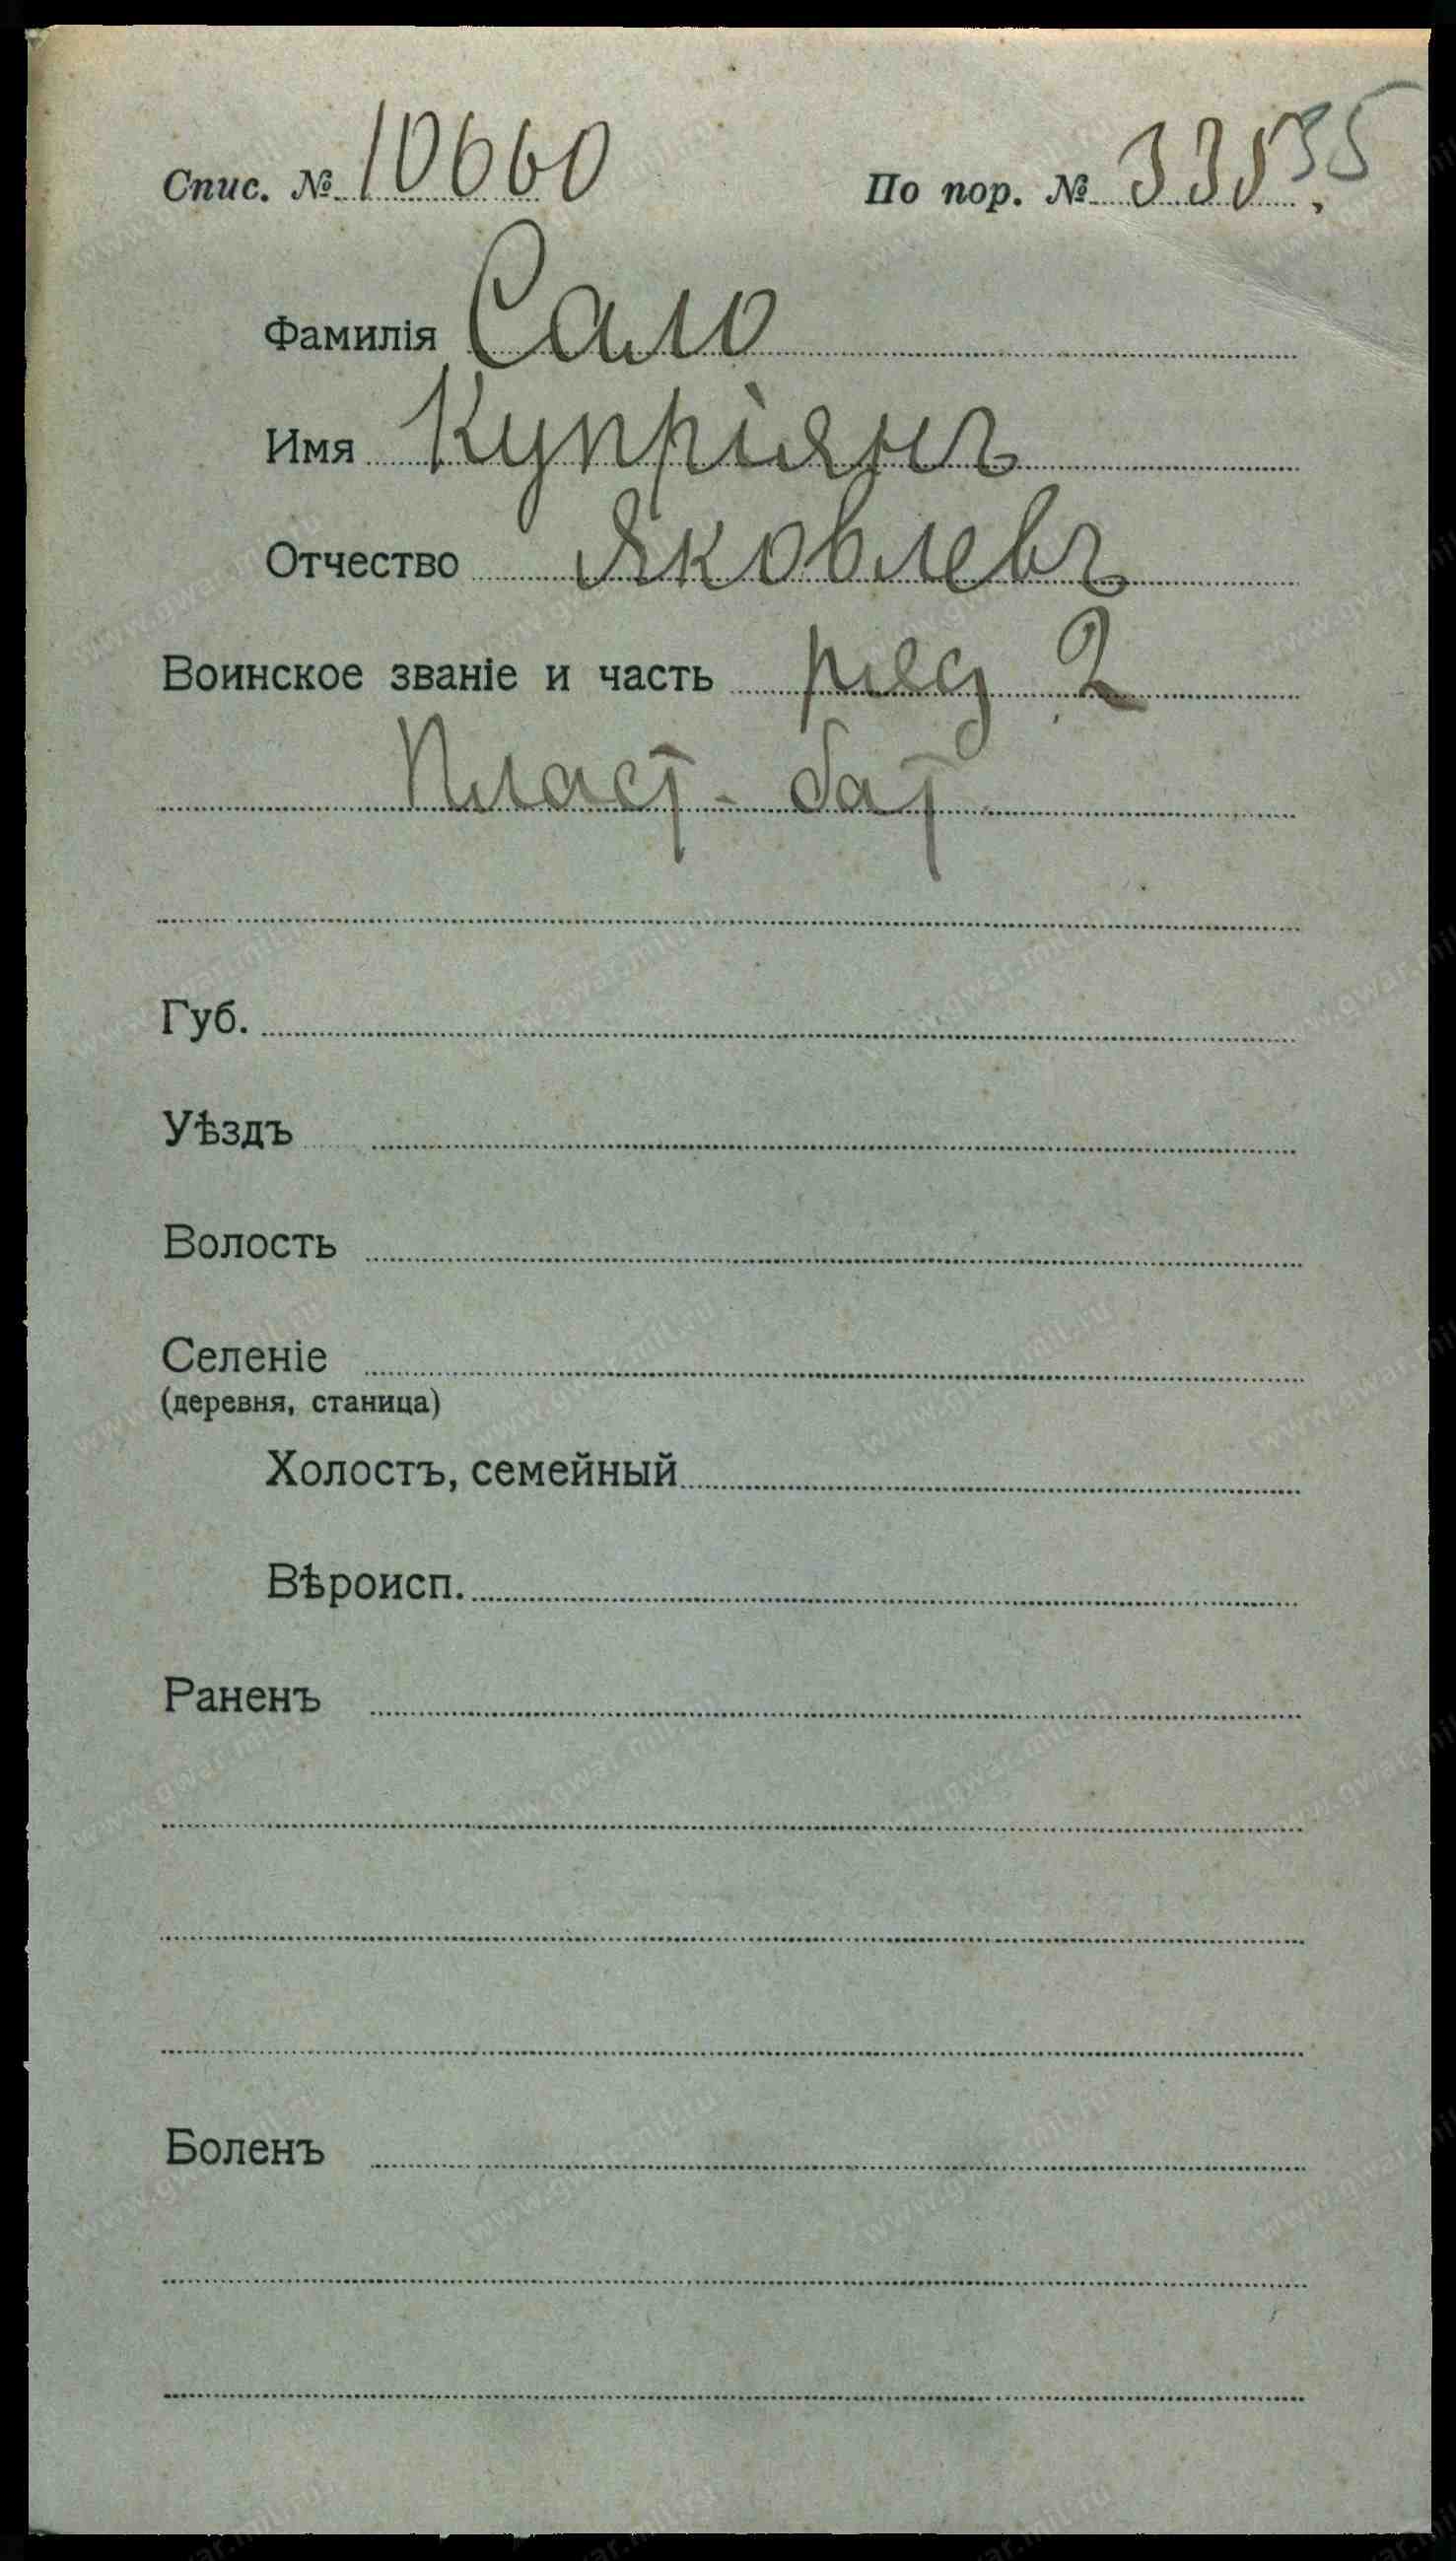 Спис. № 10660 По пор. №
Фамилія Сало
Имя Купріянъ
Отчество Яковлевъ
Воинское званіе и часть ряд 2
Пласт. бат.
Губ.
Уѣздъ
Волость
Селеніе
(деревня, станица)
Холостъ, семейный
Вѣроисп.
Раненъ
Боленъ